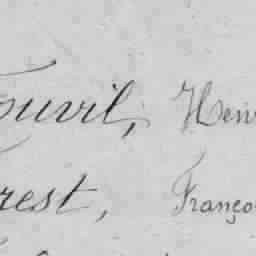 ouvil, Henr
rest, Franço